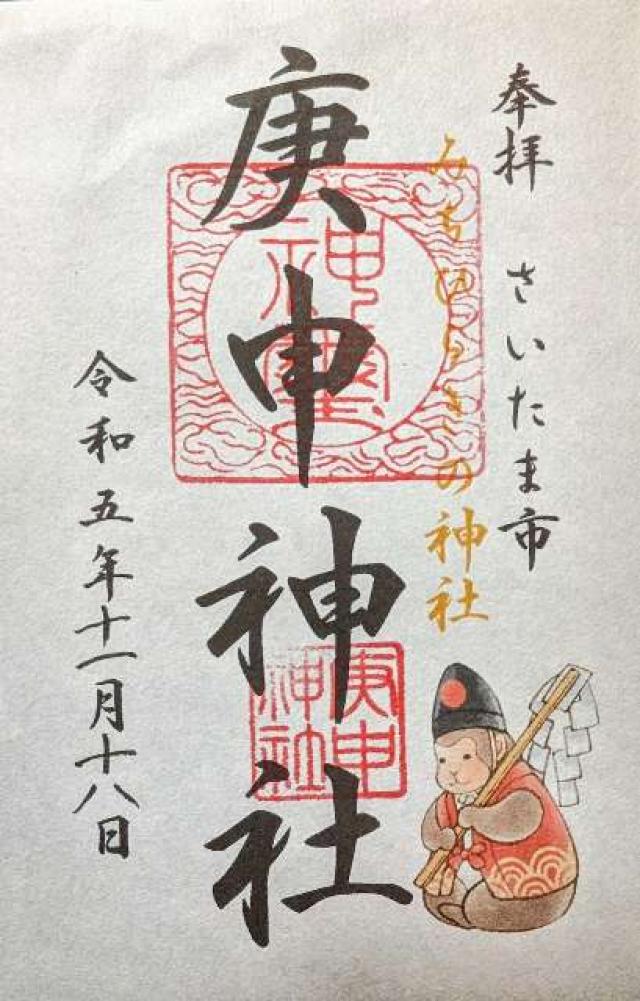 奉拝 さいたま市
みちひらきの神社
庚申神社
神璽
庚申神社
令和五年十一月十八日